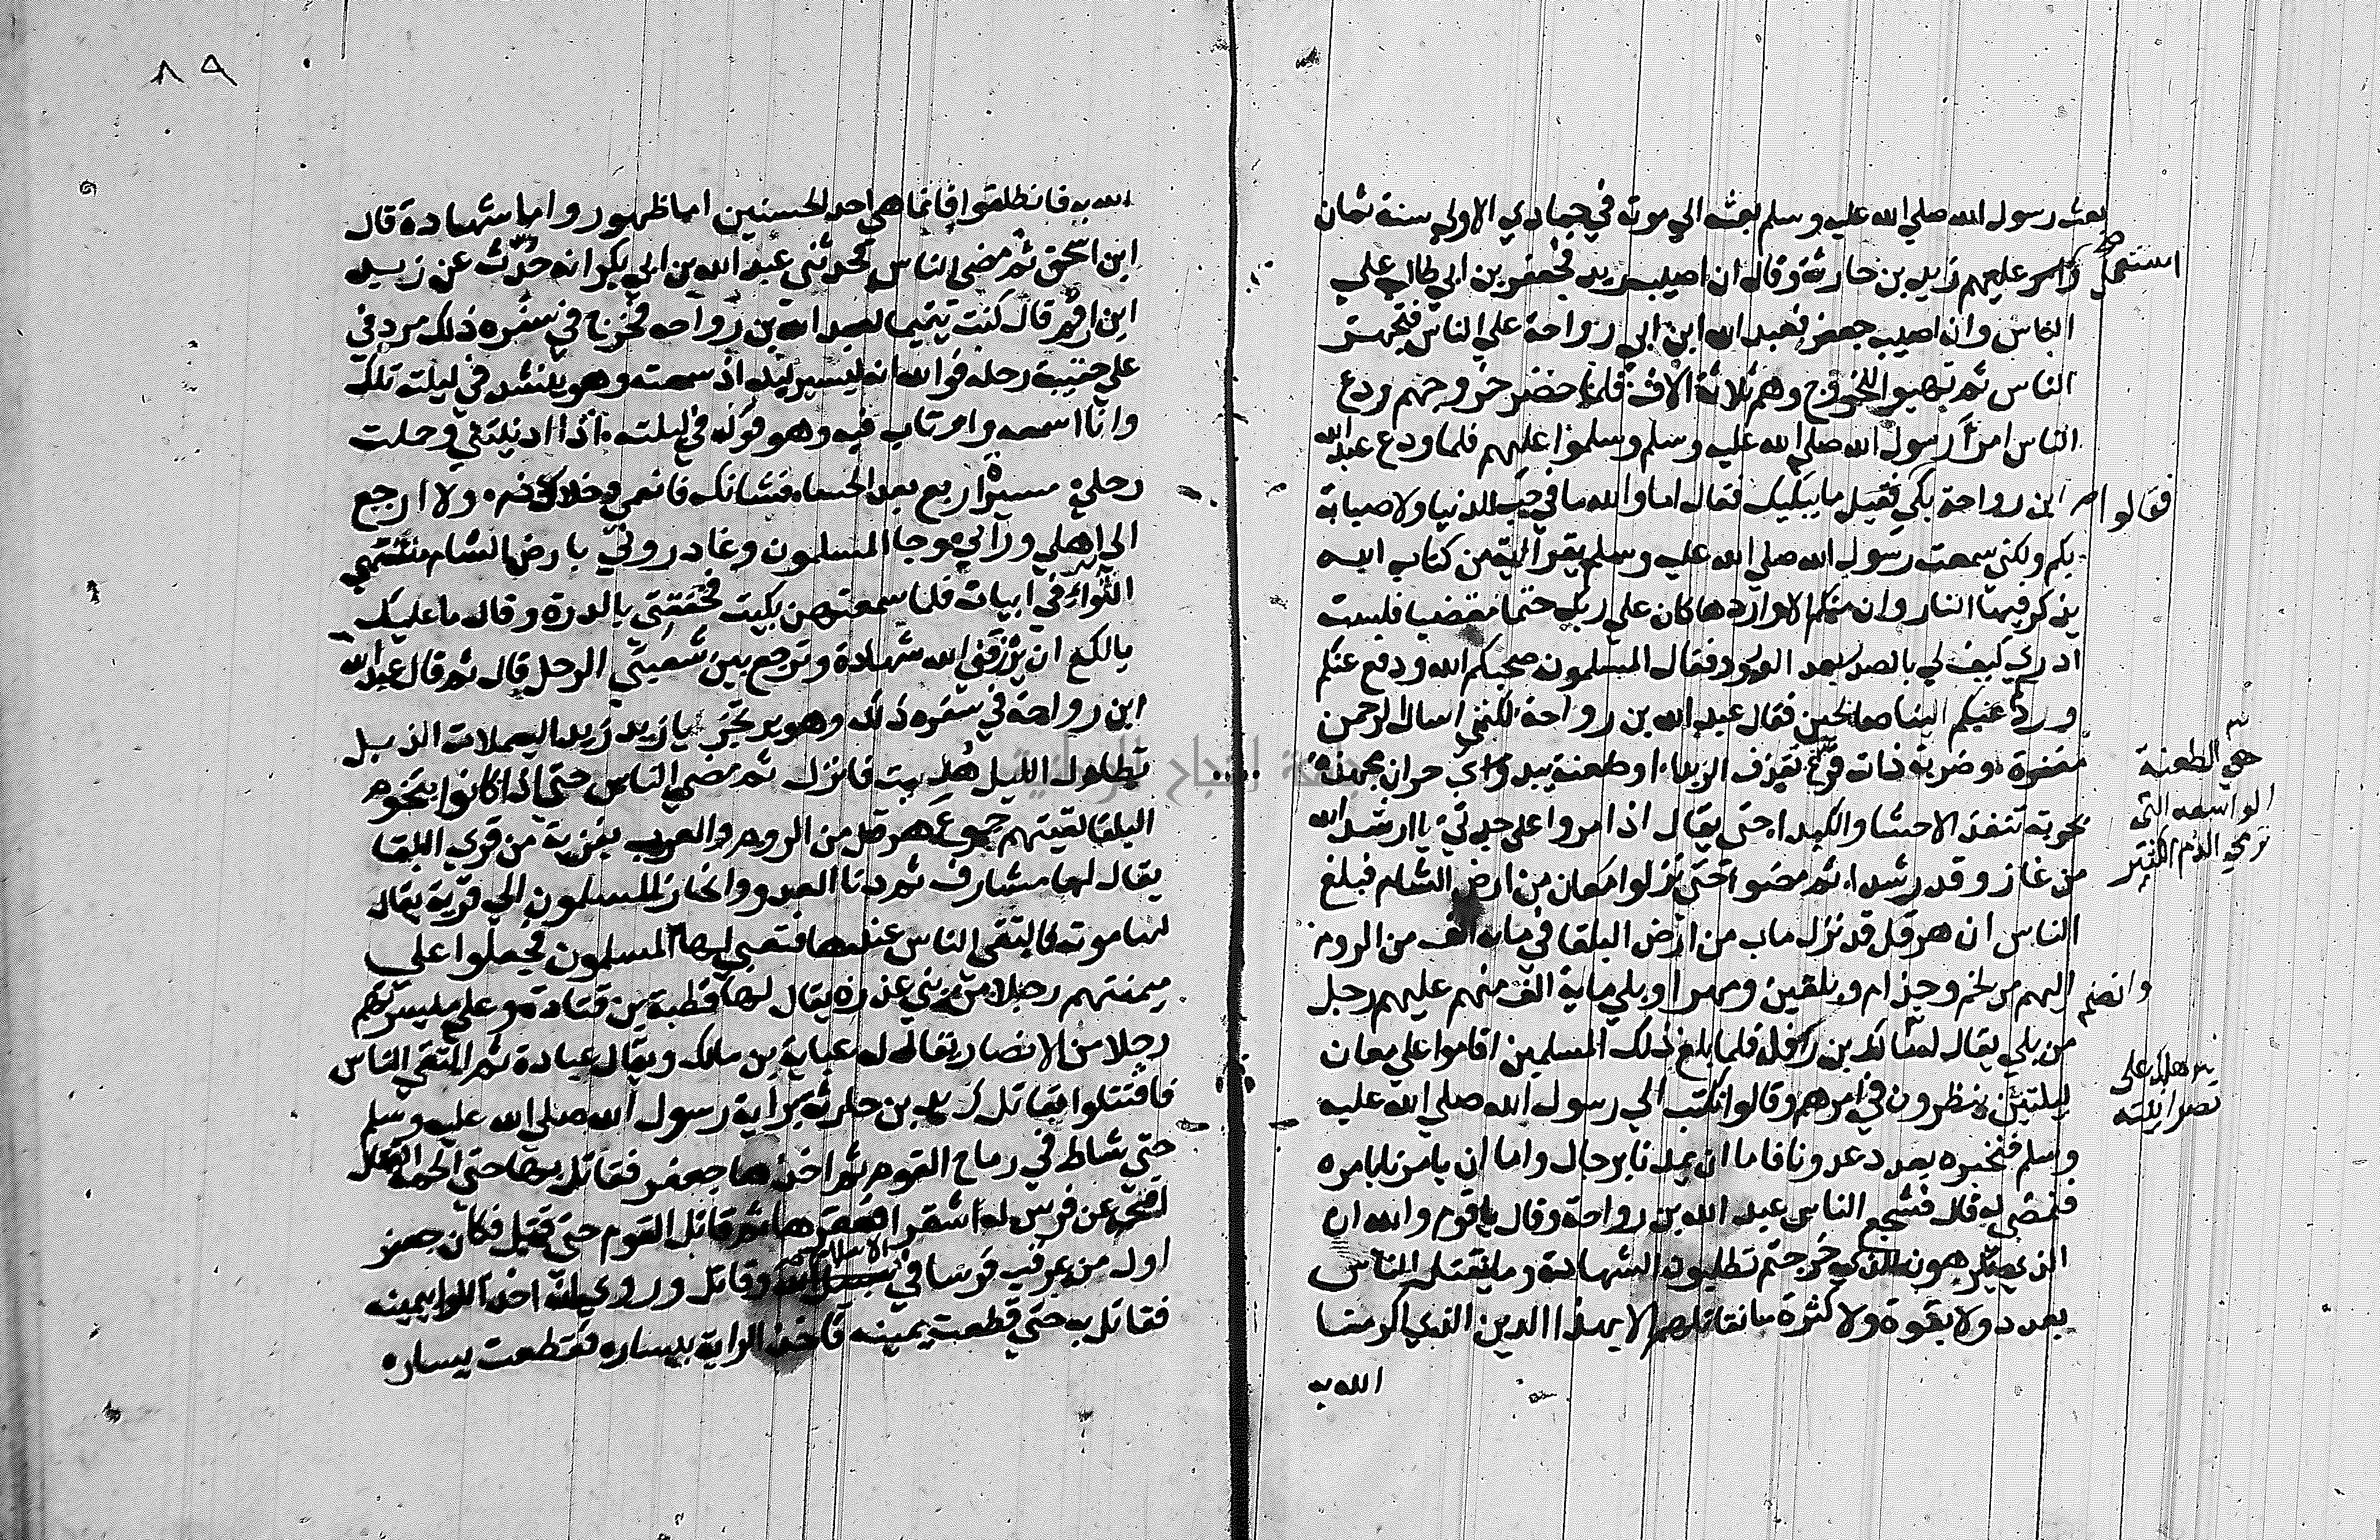 بعث رسول الله صلي الله عليه وسلم بعثه الي موته في جمادي الاولي سنة ثمان
استعمل
وامر عليهم زيد بن حارثة وقال ان اصيب زيد فجعفر بن ابي طالب علي
الناس وان اصيب جعفر فعبد الله ابن ابي رواحة علي الناس فتجهز
الناس ثم تهيوا للخروج وهم ثلاثة الاف فلما حضر خروجهم ودع
الناس امراَ رسول الله صلي الله عليه وسلم وسلموا عليهم فلما ودع عبد الله
ابن رواحة بكي فقيل ما يبكيك فقال اما والله ما في حب الدنيا ولا صبابة
فقالوا
بكم ولكني سمعت رسول الله صلي الله عليه وسلم يقرا اية من كتاب الله
يذكر فيها النار وان منكم الا واردها كان علي ربك حتما مقضيا فلست
ادري كيف لي بالصدر بعد الورود فقال المسلمون صحبكم الله ودفع عنكم
وردكم الينا صالحين فقال عبد الله بن رواحة لكنني اسال الرحمن
مغفرة وضربة ذات فرغ تقذف الزبدا او طعنة بيدي حران مجهزة
هي الطعنة
الواسعه التي
ترمي الدم الكثير
بحربة تنفذ الاحشا والكبدا حتي يقال اذا مروا علي جدثي يا ارشد الله
من غاز وقد رشدا ثم مضوا حتي نزلوا معان من ارض الشام فبلغ
الناس ان هرقل قد نزل ماب من ارض البلقا في ماية الف من الروم
وانضم
اليهم من لخم وجذام وبلقين وبهرا وبلي ماية الف منهم عليهم رجل
من بلي يقال له مالك بن رافلة فلما بلغ ذلك المسلمين اقاموا علي معان
ليلتين ينظرون في امرهم وقالوا نكتب الي رسول الله صلي الله عليه
وسلم فنخبره بعدد عدونا فاما ان يمدنا برجال واما ان يامرنا بامره
فنمضي له قال فشجع الناس عبد الله بن رواحة وقال يا قوم والله ان
الذي تكرهون للذي خرجتم تطلبون الشهادة وما نقتتل الناس
بعدد ولا بقوة ولا كثرة ما نقاتلهم الا بهذا الدين الذي اكرمنا
الله به
٨٩
الله به فانطلقوا فانما هي احد الحسنيين اما ظهور واما شهادة قال
ابن اسحق ثم مضي الناس فحدثني عبد الله بن ابي بكر انه حدث عن زيد
ابن ارقم قال كنت يتيما لعبد الله بن رواحه فخرج في سفره ذلك مردفي
علي حقيبة رحله فوالله انه ليسير ليلة اذ سمعته وهو ينشد في ليلته تلك
وانا اسمعه وهو قوله في ليلته اذا ادنيتني وحملت
رحلي مسيرة اربع بعد الحساء فشانك فانعمي وخلاك ذم ولا ارجع
الي اهلي ورائي وجا المسلمون وغادروني بارض الشام مشتهي
الثواء في ابيات فلما سمعتهن بكيت فخفقني بالدرة وقال ما عليك
يالكع ان يرزقني الله شهادة وترجع بين شعبتي الرحل قال ثم قال عبد الله
ابن رواحة في سفره ذلك وهو يرتجز يا زيد زيد اليعملات الذبل
تطاول الليل هديت فانزل ثم مضي الناس حتي اذا كانوا بتخوم
البلقا لقيتهم جموع هرقل من الروم والعرب بقرية من قري البلقا
يقال لها مشارف ثم دنا العدو وانحاز المسلمون الي قرية يقال
لها موته فالتقي الناس عندها فتعبي لها المسلمون فجعلوا علي
ميمنتهم رجلا من بني عذره يقال لها قطبة بن قتادة وعلي ميسرتهم
رجلا من الانصار يقال له عباية بن مالك ويقال عبادة ثم التقي الناس
فاقتتلوا فقاتل زيد بن حارثة براية رسول الله صلي الله عليه وسلم
حتي شاط في رماح القوم ثم اخذها جعفر فقاتل بها حتي الحمه القتال
اقتحم عن فرس له اشقرا فعقرها ثم قاتل القوم حتي قتل فكان جعفر
اول من عرقب فرسا في سبيل الله وقاتل وروي انه اخذ اللوا بيمينه
الاسلام
فقاتل به حتي قطعت يمينه فاخذ الراية بيساره فقطعت يساره